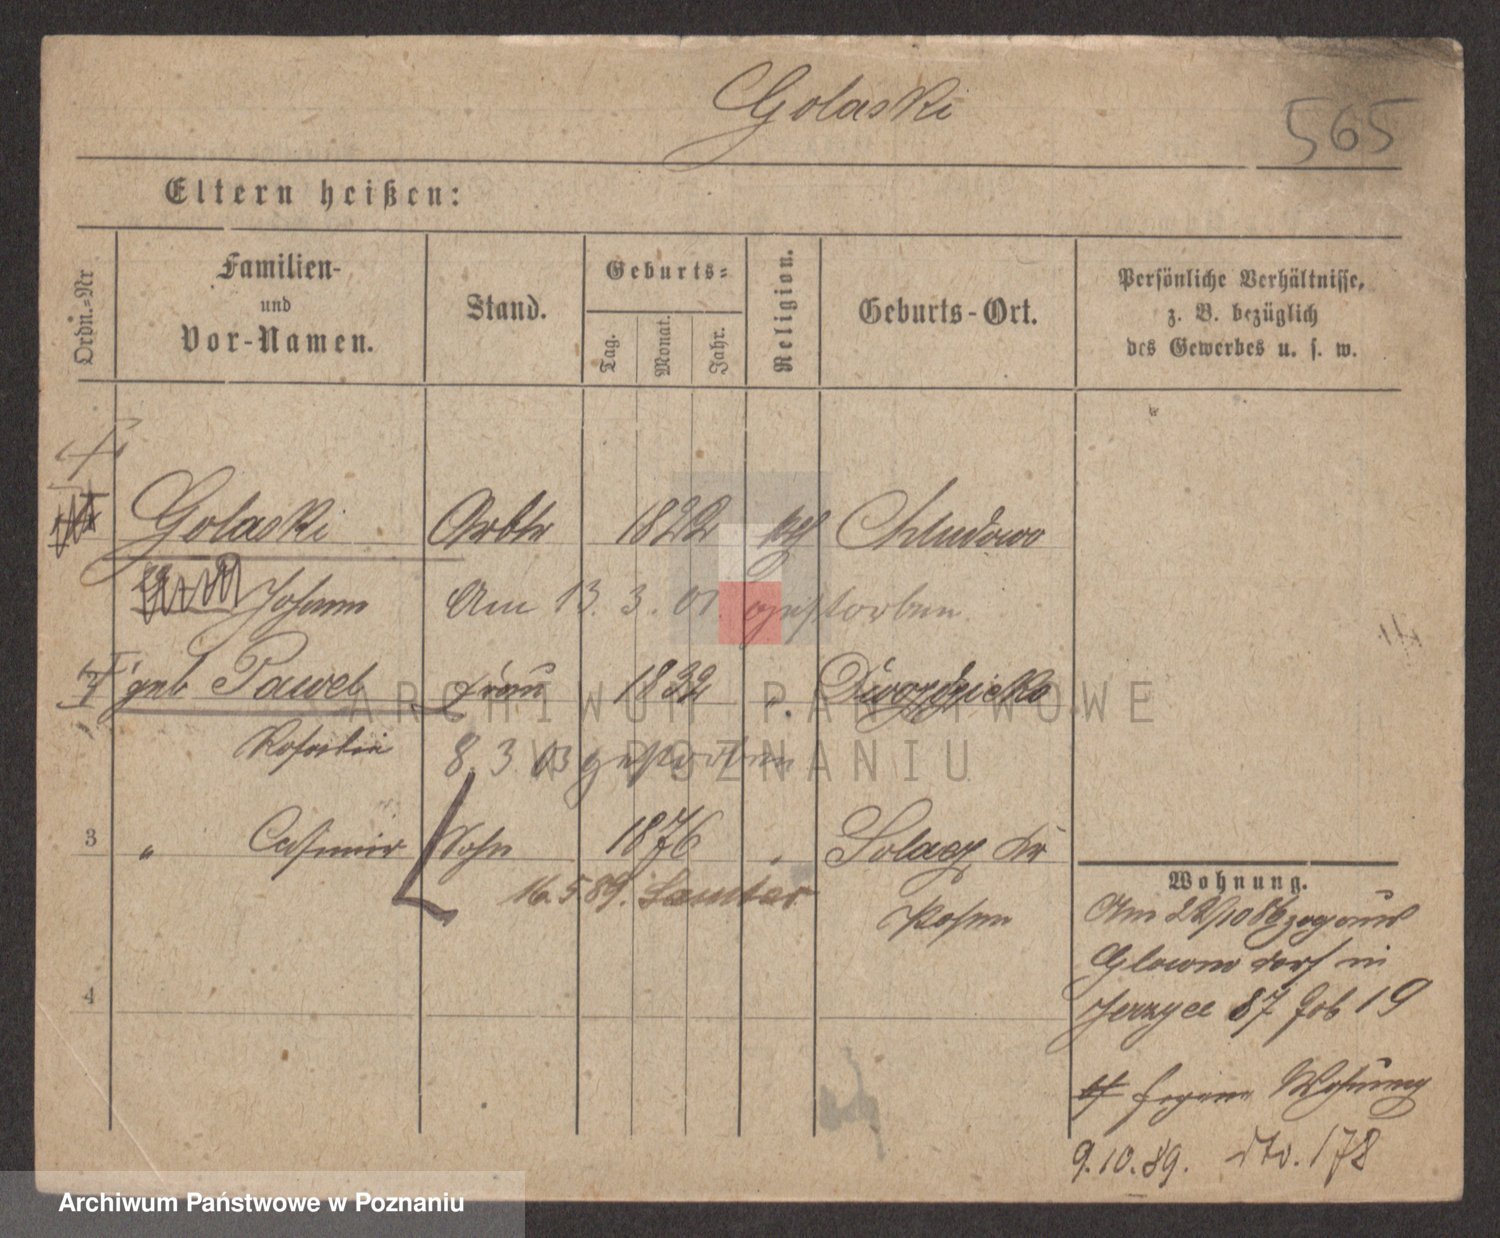 Golaski
565
Eltern heißen:
Ordn.-Nr
Familien-
und
Vor-Namen.
Stand.
Geburts-
Tag.
Monat.
Jahr.
Religion.
Geburts-Ort.
Persönliche Verhältnisse,
z. B. bezüglich
des Gewerbes u. s. w.
Golaski Arbtr 1822 kth Chludowo
Johann Am 13. 3. 01. gestorben
geb Pawel Frau 1832 "
Rosalie 8. 3. 03 gestorben
3 " Casimir Sohn 1876 " Solacz Kr
16.5 89. Samter Posen
4
Wohnung.
Am 22/10 86 zog aus
Glowno dorf in
Jerzyce 87
19
Wohnung
9.10.89. dto. 178
ARCHIWUM PAŃSTWOWE
W POZNANIU
Archiwum Państwowe w Poznaniu